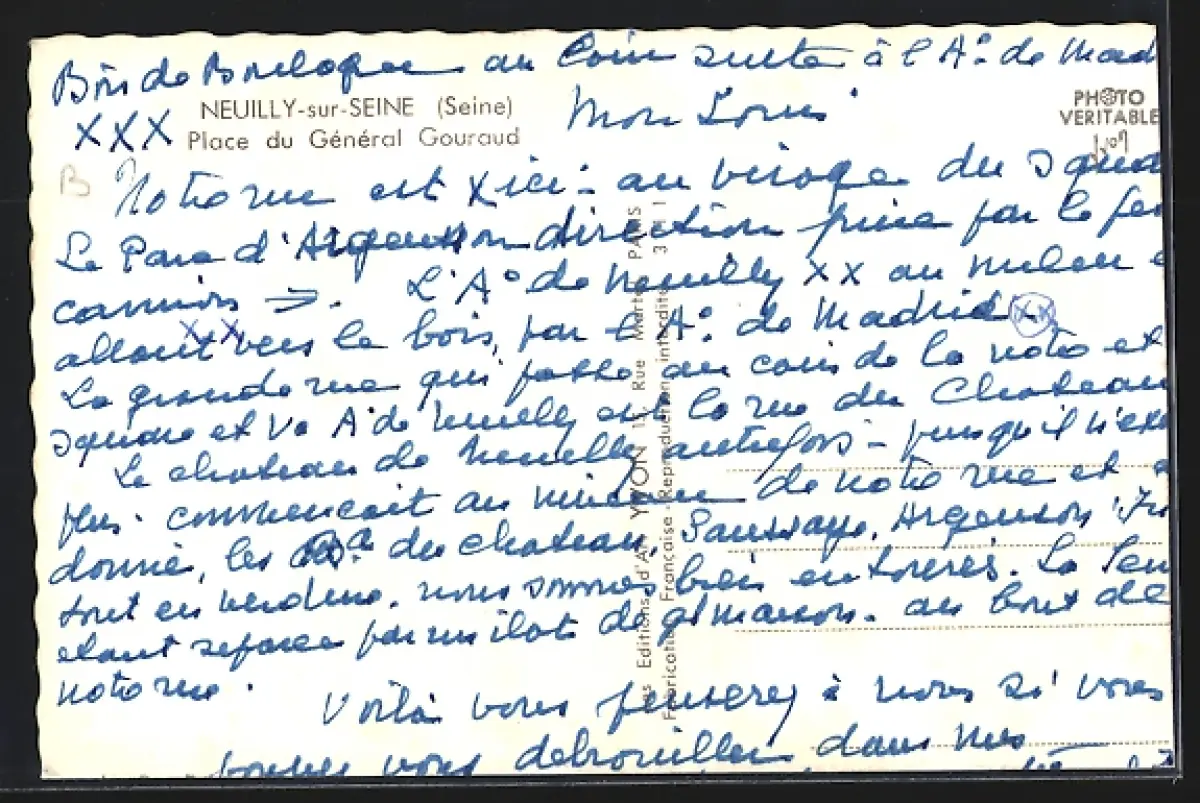 Bois de Boulogne au Coin suite à l'Av. de Mad
NEUILLY-sur-SEINE (Seine)
XXX Place du Général Gouraud
Mon Louis
PHOTO
VERITABLE
B Notre rue est X ici - au virage du Squa
Le Parc d'Argenson direction prise par le
camions → . L'Av. de Neuilly XX au milieu
allant vers le bois, par l'Av. de Madrid XX
XX
La grande rue qui passe au coin de la notre et
square et va Av. de Neuilly est la rue du Chateau
Le chateau de Neuilly autrefois - puisqu'il n'exi
plus. commencait au milieu de notre rue et a
donné, les du chateau, Saussaye, Argenson
tout en verdure. nous sommes bien entourés. La
etant separée par un ilot de gd maison. au bout de
notre rue.
Voilà vous penserez à nous si vous
vous debrouiller dans mes
Les Editions d'Art YVON 15, Rue Martel PARIS
Fabrication Française - Reproduction interdite